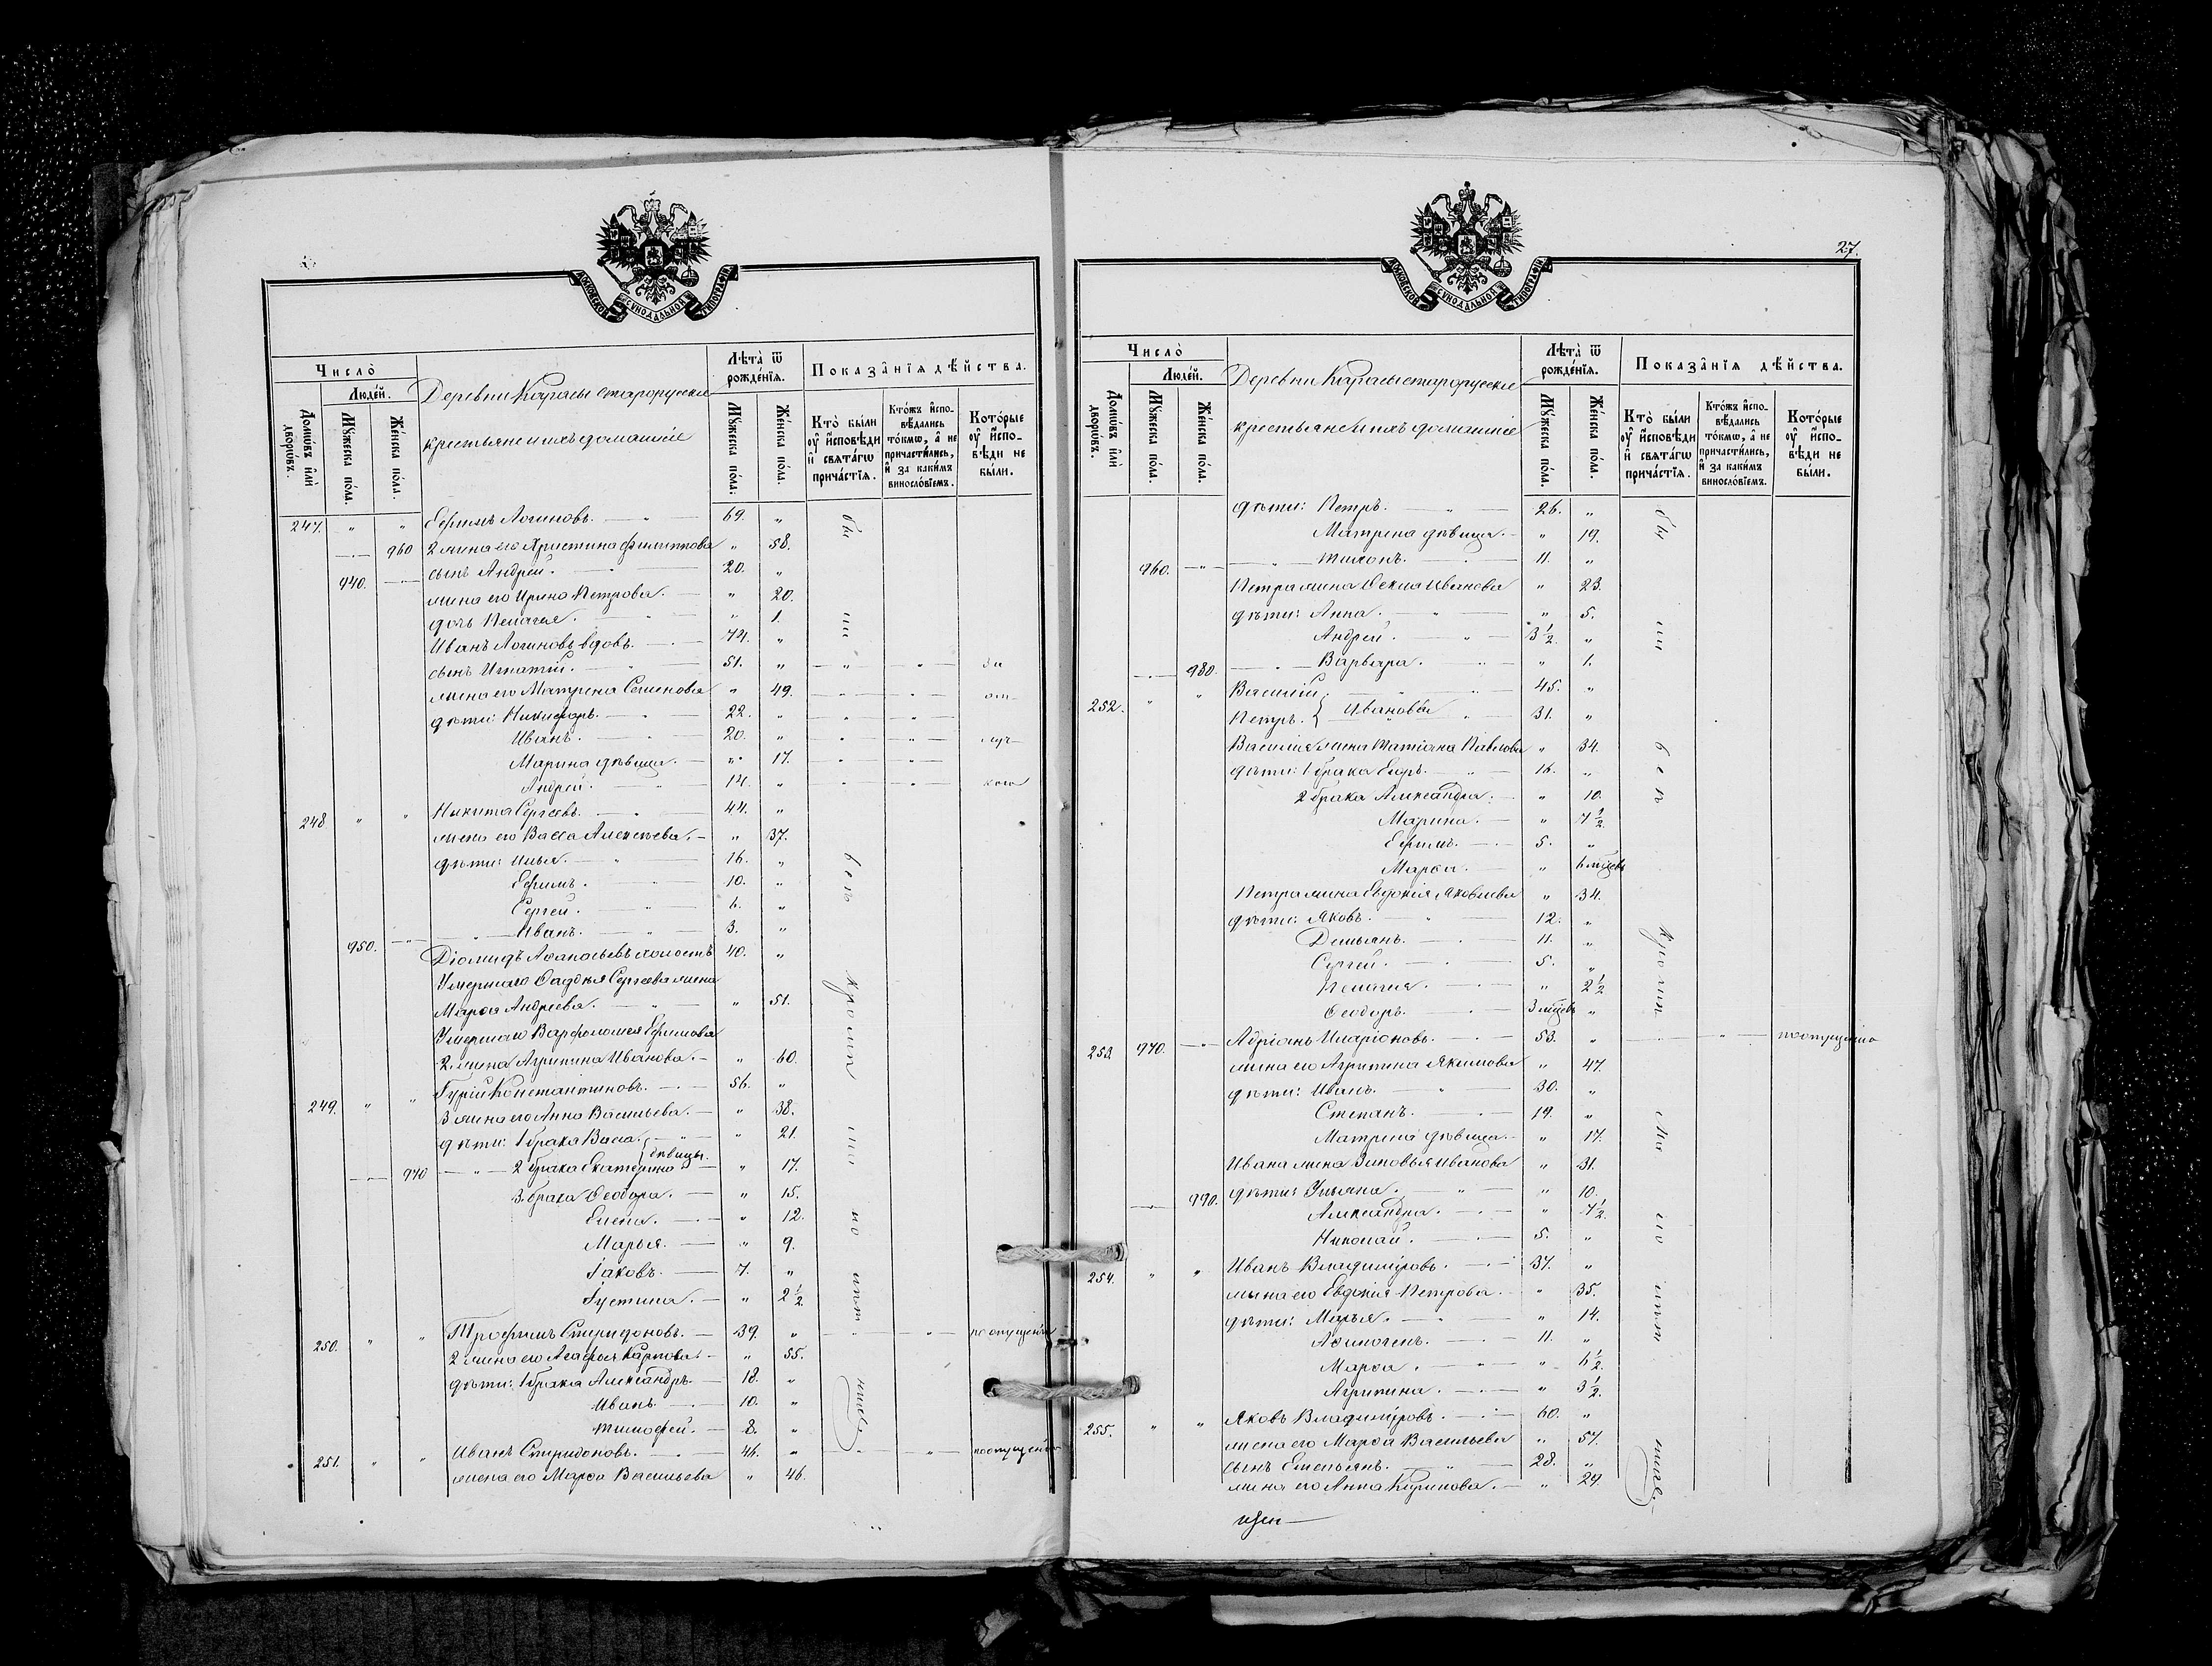 МОСКОВСКОЙ СѴНОДАЛЬНОЙ ТИПОГРАФІИ
Число̀
Люде́й.
Домѡ́въ и҆лѝ дворѡ́въ.
Мꙋ́жеска по́ла.
Же́нска по́ла.
Деревни Карасы старорусскіе
крестьяне и ихъ домашніе
Лѣ́та ѿ рожде́нїѧ.
Мꙋ́жеска по́ла.
Же́нска по́ла.
Показа̑нїѧ дѣ́йства.
Кто̀ бы́ли ᲂу҆ и҆сповѣ́ди и҆ свѧта́гѡ прича́стїѧ.
Кто́жъ и҆сповѣ́дались то́кмѡ, а҆ не причасти́лись, и҆ за каки́мъ винослѡ́вїемъ.
Кото́рые ᲂу҆ и҆сповѣ́ди не бы́ли.
247. " " Ефимъ Логиновъ. 69. "
960 2 жена его Христина Филиппова " 58.
940. сынъ Андрей. 20. "
жена его Ирина Петрова. " 20.
дочь Пелагея. " 1.
Иванъ Логиновъ вдовъ. 74. "
сынъ Игнатій. 51. "
жена его Матрена Семенова " 49.
дѣти: Никифоръ. 22. "
Иванъ. 20. "
Марина дѣвица. " 17.
Андрей. 14. "
248 " " Никита Сергѣевъ. 44. "
жена его Васса Алексѣева. " 37.
дѣти: Илья. 16. "
Ефимъ. 10. "
Сергей. 6. "
950. Иванъ. 3. "
Діомидъ Аѳанасьевъ холостъ 40. "
Умершаго Ѳаддѣя Сергѣева жена
Марѳа Андреева. " 51.
Умершаго Варфоломея Ефимова
2 жена Агрипина Иванова. " 60.
249. " " Гурій Константиновъ. 56. "
3 жена его Анна Васильева. " 38.
дѣти: 1 брака Васса. " 21.
дѣвицы.
970 2 брака Екатерина " 17.
3 брака Ѳеодора. " 15.
Елена. " 12.
Марья. " 9.
Іаковъ. 7. "
Іустина. " 2 1/2
250. " " Трофимъ Спиридоновъ. 39. " " " по опущенію
2 жена его Агафья Карпова. " 55.
дѣти: 1 брака Александръ. 18. "
Иванъ. 10. "
Тимофей. 8. "
251. " " Иванъ Спиридоновъ. 46. " " " по опущенію
жена его Марѳа Васильева " 46.
27.
МОСКОВСКОЙ СѴНОДАЛЬНОЙ ТИПОГРАФІИ
Число̀
Люде́й.
Домѡ́въ и҆лѝ дворѡ́въ.
Мꙋ́жеска по́ла.
Же́нска по́ла.
Деревни Карасы старорусскіе
крестьяне и ихъ домашніе
Лѣ́та ѿ рожде́нїѧ.
Мꙋ́жеска по́ла.
Же́нска по́ла.
Показа̑нїѧ дѣ́йства.
Кто̀ бы́ли ᲂу҆ и҆сповѣ́ди и҆ свѧта́гѡ прича́стїѧ.
Кто́жъ и҆сповѣ́дались то́кмѡ, а҆ не причасти́лись, и҆ за каки́мъ винослѡ́вїемъ.
Кото́рые ᲂу҆ и҆сповѣ́ди не бы́ли.
дѣти: Петръ. 26. "
Матрена дѣвица. " 19.
960. Тихонъ. 11. "
Петра жена Ѳекла Иванова " 23.
дѣти: Анна. " 5.
Андрей. 3 1/2. "
980. Варвара. " 1.
252. " " Василій. 45. "
Ивановы
Петръ. 31. "
Василія жена Татіана Павлова " 34.
дѣти: 1 брака Егоръ. 16. "
2 брака Александра. " 10.
Марина. " 7 1/2.
Ефимъ. 5. "
Марѳа. " 6 мѣсев
Петра жена Евдокія Яковлева " 34.
дѣти: Яковъ. 12. "
Демьянъ. 11. "
Сергей. 5. "
Пелагея. " 2 1/2
Ѳеодоръ. 3 мѣсев "
253. 970. Адріанъ Иларіоновъ. 53. " " по опущенію
жена его Агрипина Якимова " 47.
дѣти: Иванъ. 30. "
Степанъ. 19. "
Матрена дѣвица. " 17.
Ивана жена Зиновья Иванова " 31.
990. дѣти: Ульяна. " 10.
Александра. " 7 1/2.
Николай. 5. "
254. " " Иванъ Владиміровъ. 37. "
жена его Евдокія Петрова. " 35.
дѣти: Марья. " 14.
Аѳиногенъ. 11. "
Марѳа. " 6 1/2.
Агрипина. " 3 1/2.
255. " " Яковъ Владиміровъ. 60. "
жена его Марѳа Васильева " 57.
сынъ Емельянъ. 28. "
жена его Анна Курикова. " 29.